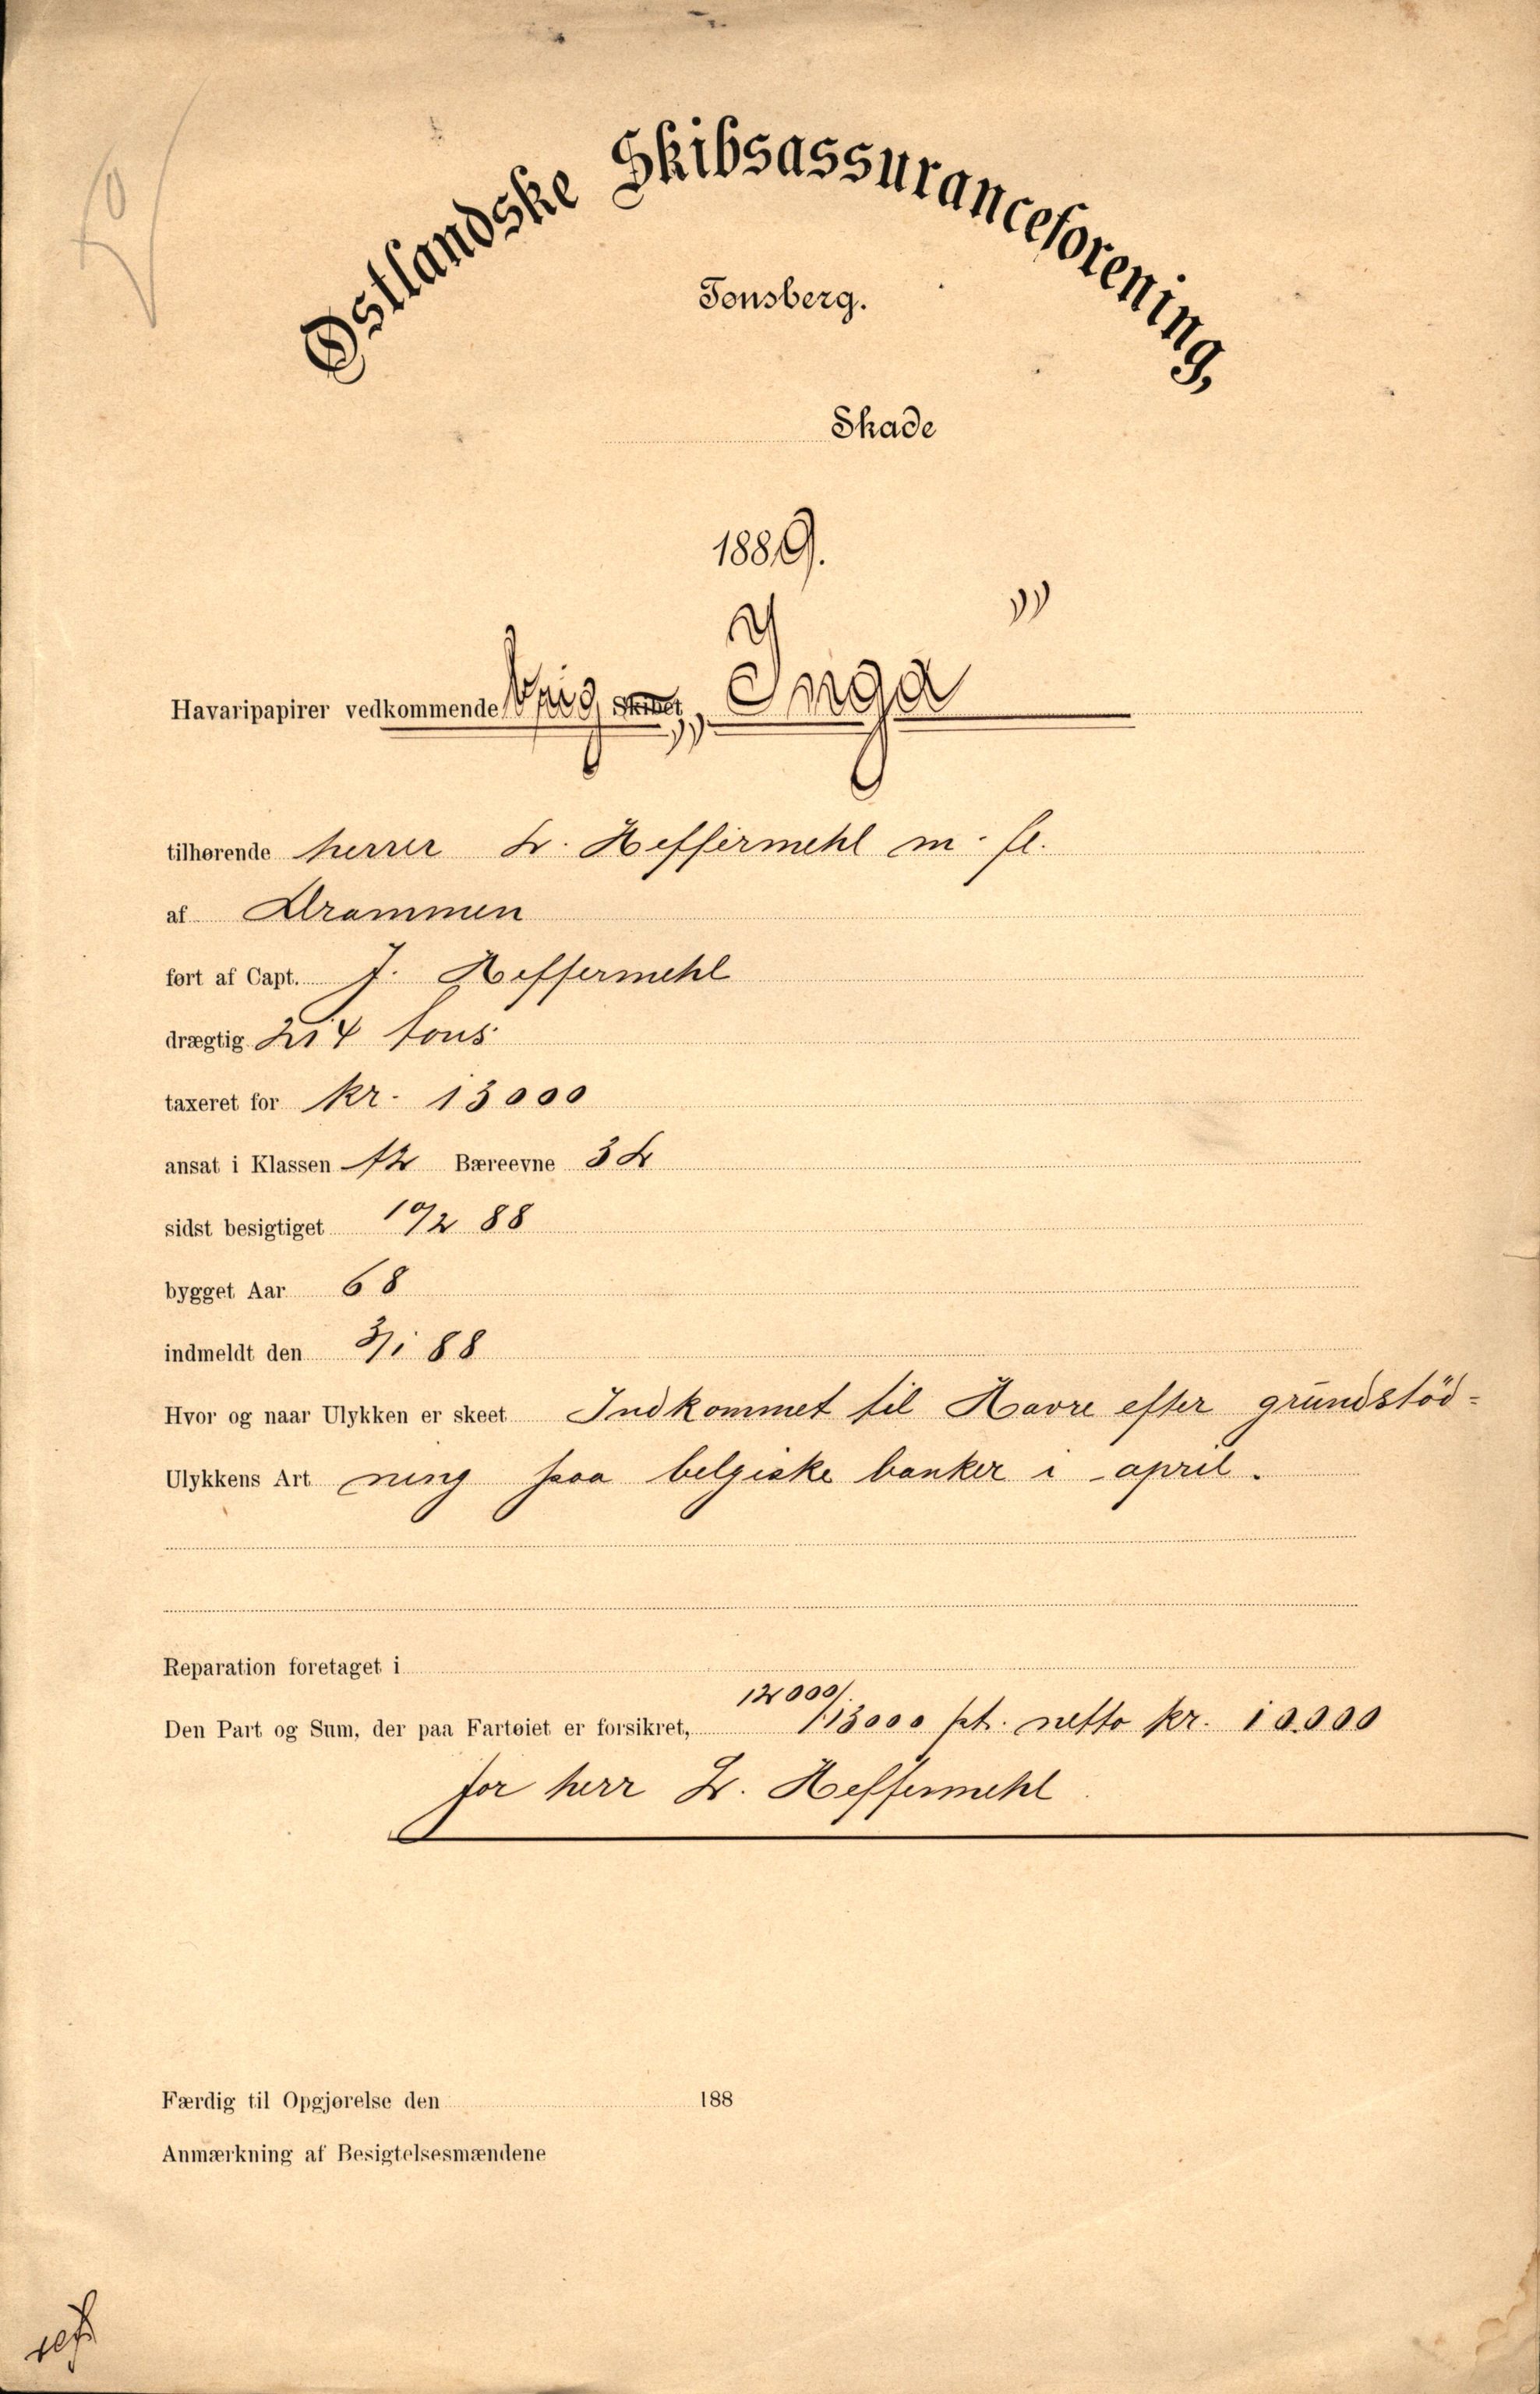 Østlandske Skibsassuranceforening,
Tønsberg.
Skade
1889.
Havaripapirer vedkommende Brig Skibet „Inga”
tilhørende herrer L. Heffermehl m. fl.
af Drammen
ført af Capt. J. Heffermehl
drægtig 214 tons
taxeret for kr. 13000
ansat i Klassen A2 Bæreevne 3 L
sidst besigtiget 10/2 88
bygget Aar 68
indmeldt den 3/1 88
Hvor og naar Ulykken er skeet Indkommet til Havre efter grundstöd-
Ulykkens Art ning paa belgiske banker i april.
Reparation foretaget i
Den Part og Sum, der paa Fartøiet er forsikret, 12000/13000 pt. netto kr. 10.000
for herr L. Heffermehl
Færdig til Opgjørelse den 188
Anmærkning af Besigtelsesmændene